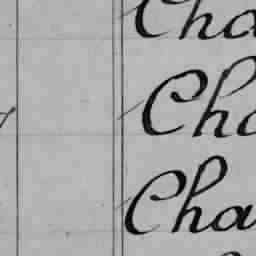 Cha
Cha
Cha